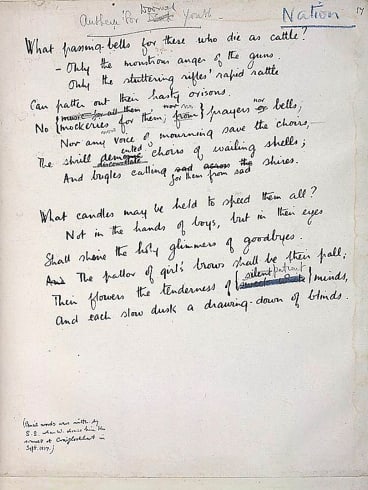 Anthem for Doomed Dead Youth
Nation
What passing-bells for these who die as cattle?
- Only the monstrous anger of the guns.
Only the stuttering rifles' rapid rattle
Can patter out their hasty orisons.
No music for all them nor
mockeries for them; from prayers or nor bells;
Nor any voice of mourning save the choirs,—
The shrill demented choirs of wailing shells;
disconsolate
And bugles calling sad across the shires.
for them from sad
What candles may be held to speed them all?
Not in the hands of boys, but in their eyes
Shall shine the holy glimmers of goodbyes.
And The pallor of girls' brows shall be their pall;
silent patient
Their flowers the tenderness of minds,
And each slow dusk a drawing-down of blinds.
(Pencil words were written by
S.S. when W. showed him the
sonnet at Craiglockhart in
Sept. 1917.)